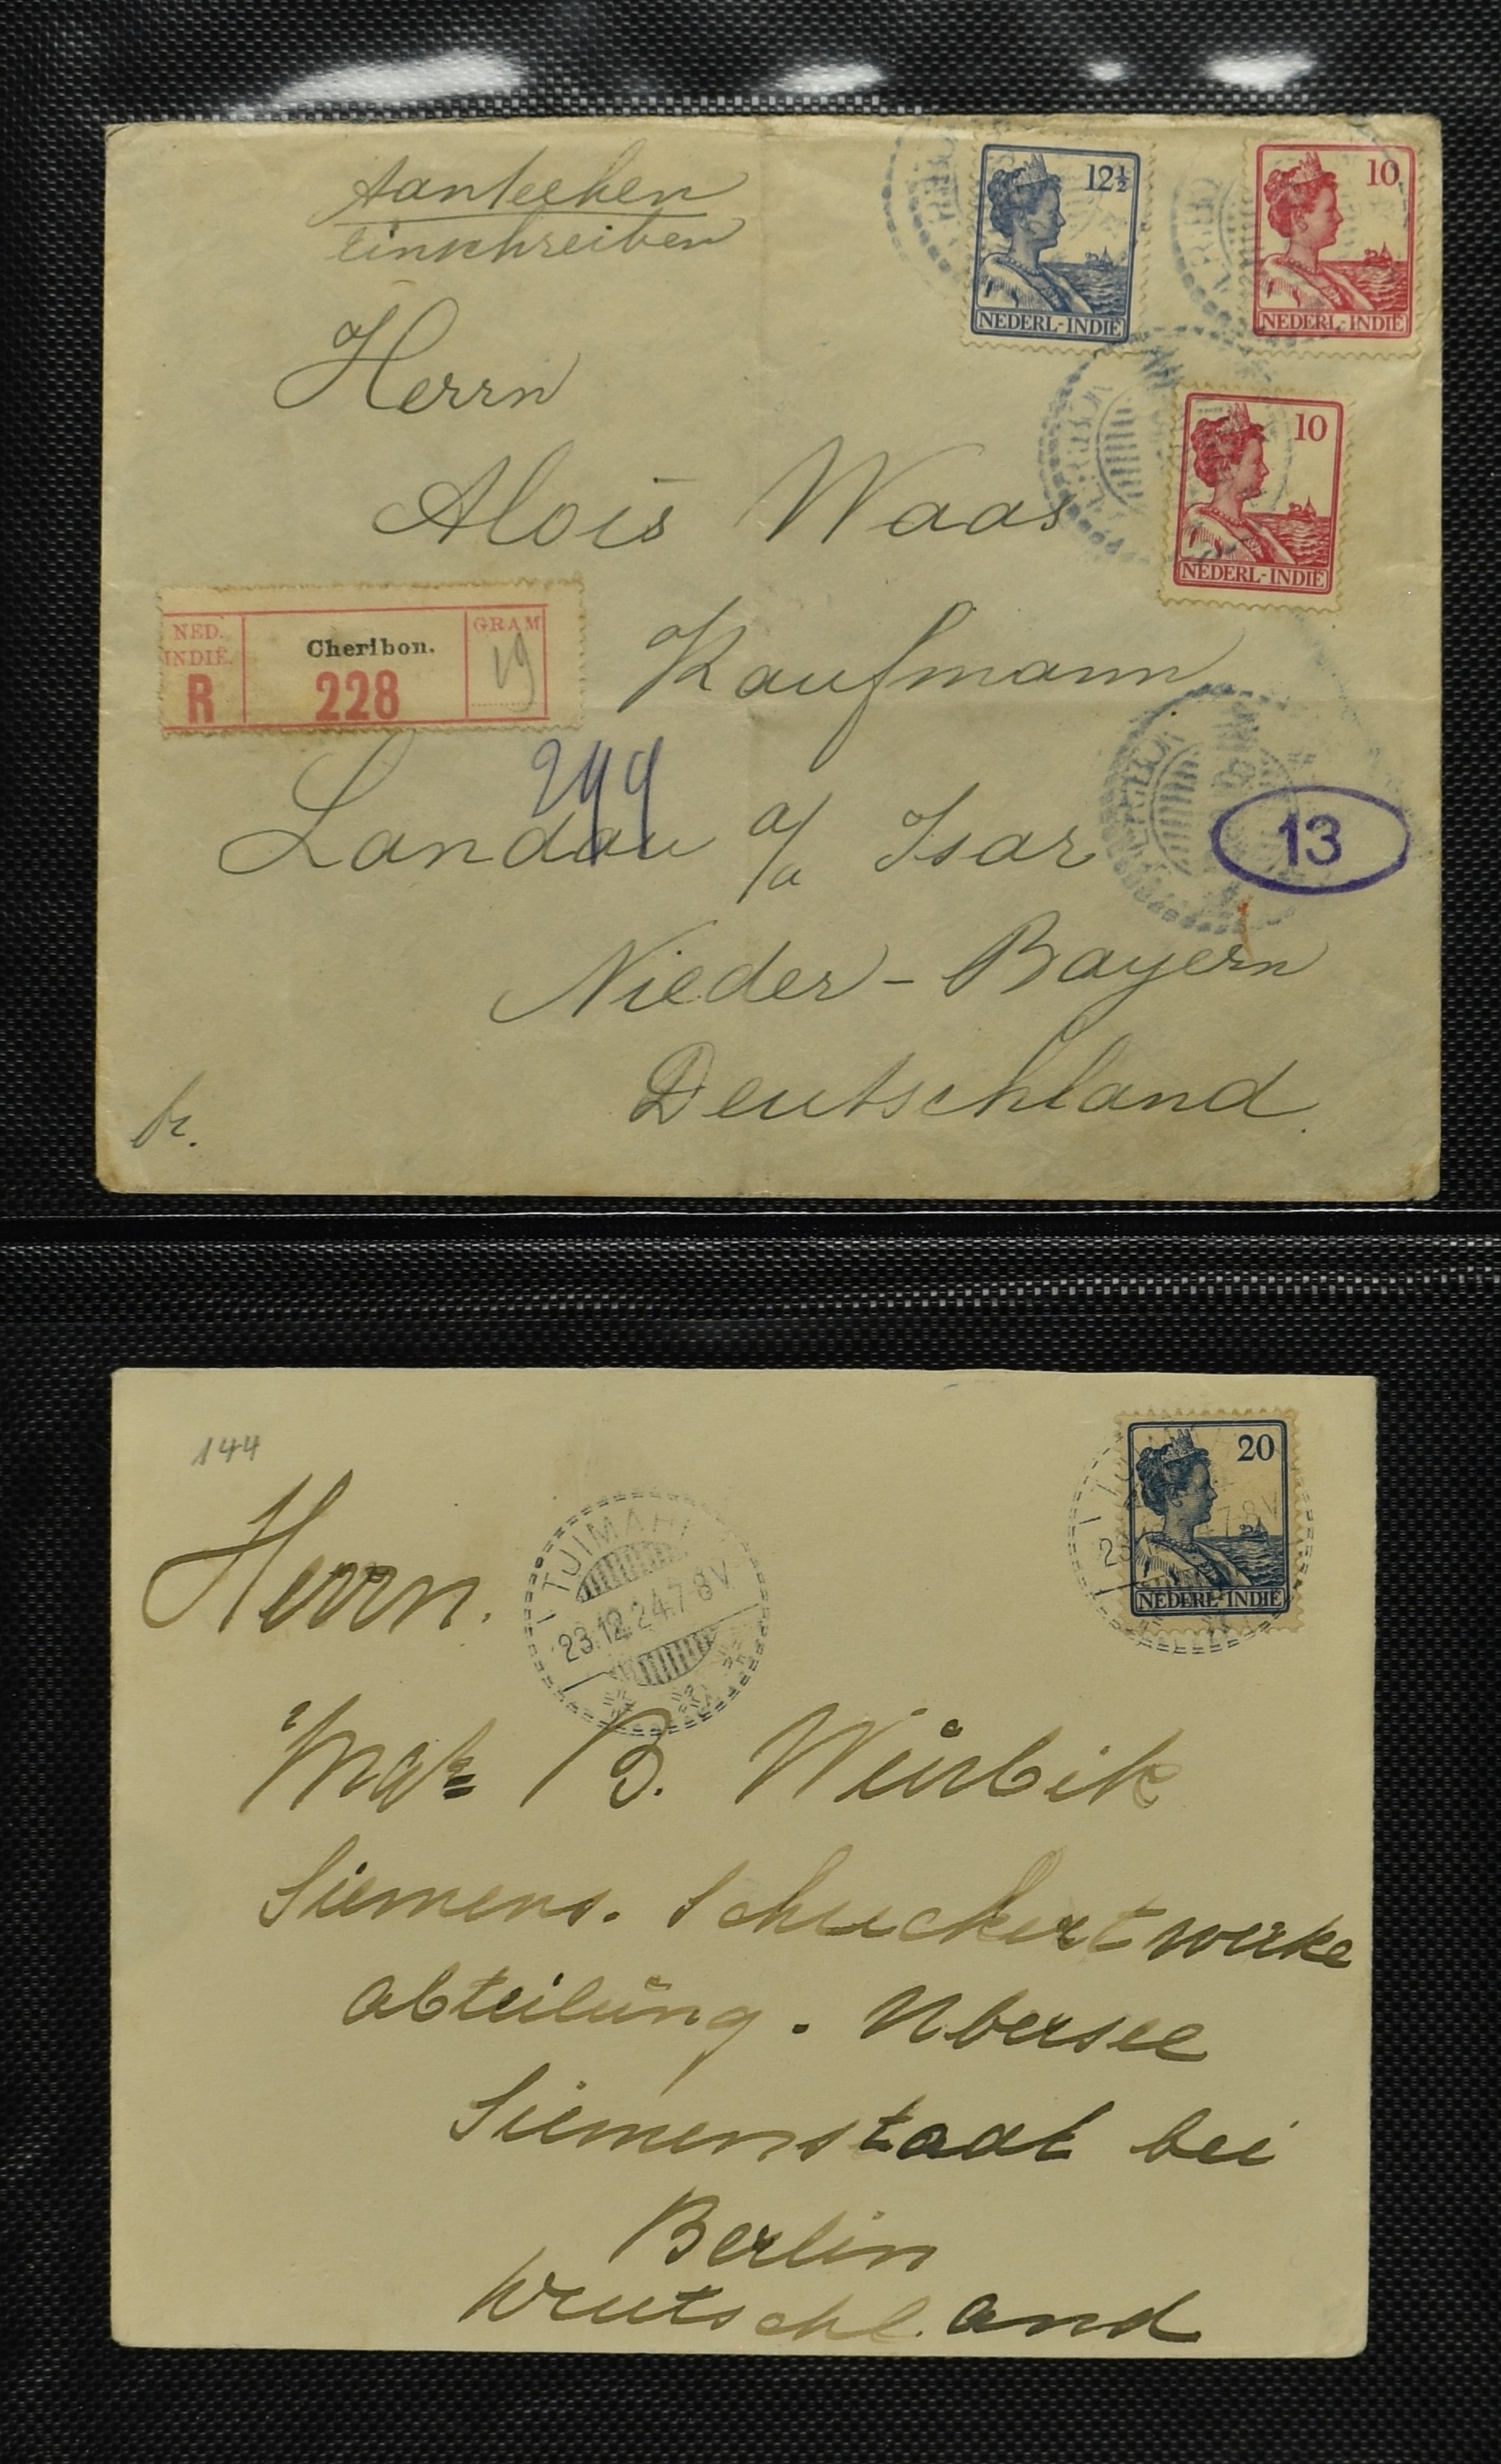 Aanteeken
Einschreiben
12½
NEDERL-INDIË
10
NEDERL-INDIË
10
NEDERL-INDIË
Herrn
Alois Waas
Kaufmann
NED. INDIË.
R
Cheribon.
228
GRAM
19
244
Landau a/ Isar
13
Nieder-Bayern
Deutschland.
br.
144
20
NEDERL-INDIË
TJIMAHI
23.12.24.7-8V
Herrn.
B. Würbik
Siemens. Schuckertwerke
abteilung. Ubersee
Siemenstadt bei
Berlin
Deutschland